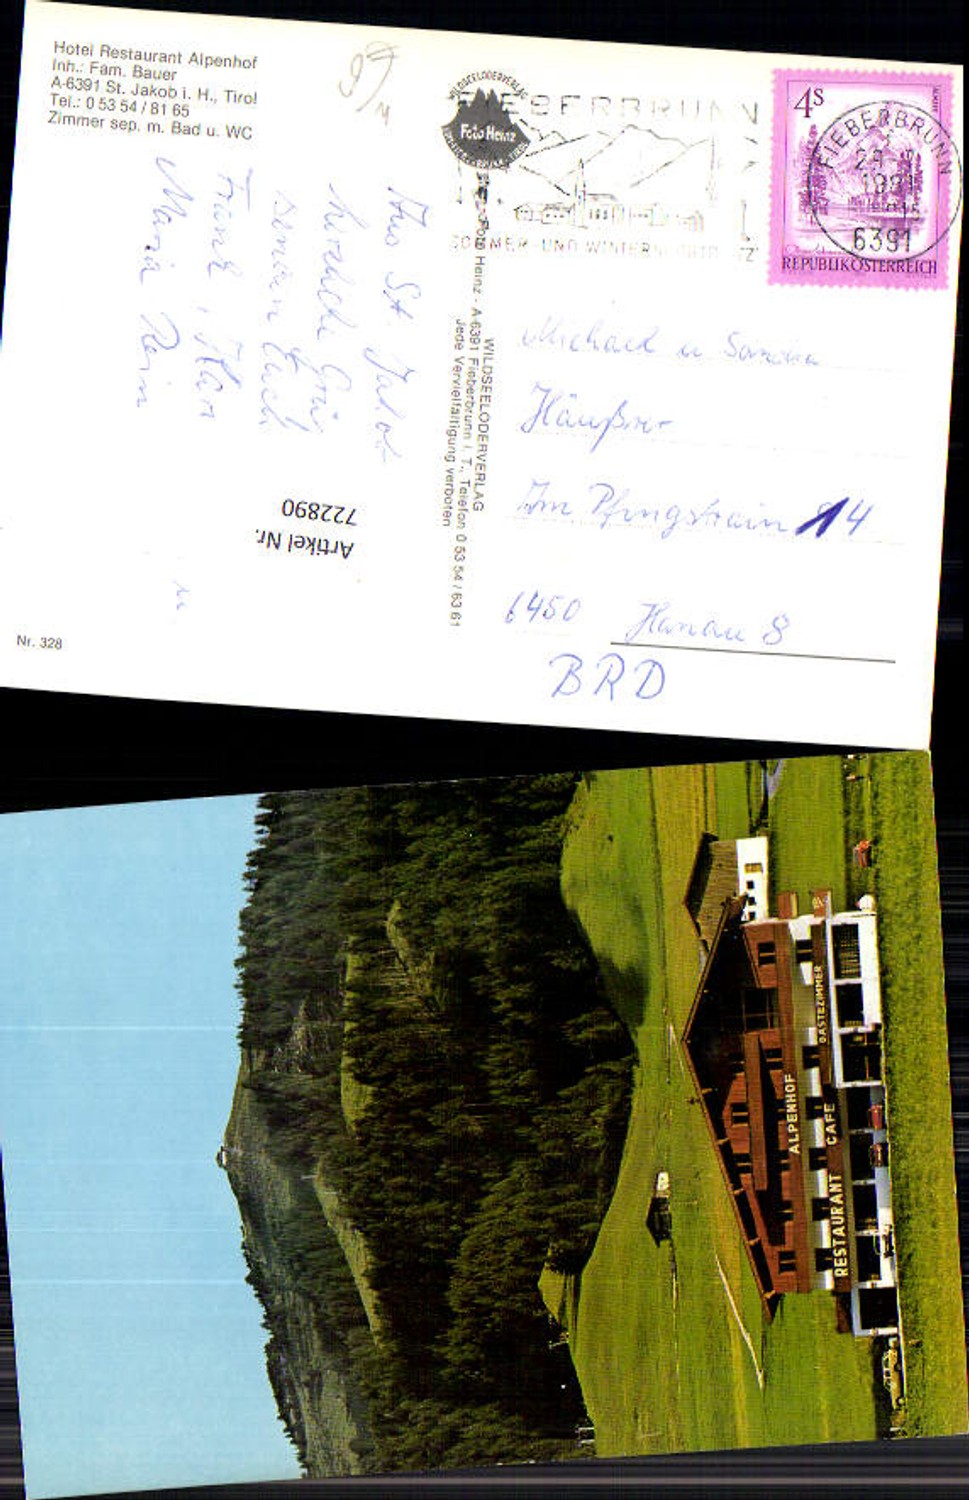 Hotel Restaurant Alpenhof
Inh.: Fam. Bauer
A-6391 St. Jakob i. H., Tirol
Tel.: 0 53 54 / 81 65
Zimmer sep. m. Bad u. WC
WILDSEELODERVERLAG
Foto Heinz
FIEBERBRUNN
SOMMER- UND WINTERSPORTPLATZ
4S
REPUBLIK ÖSTERREICH
FIEBERBRUNN
6391
Aus St. Jakob
herzliche Grüße
senden Euch
Frank,
Maria
WILDSEELODERVERLAG
Foto Heinz - A-6391 Fieberbrunn i. T., Telefon 0 53 54 / 63 61
Jede Vervielfältigung verboten
Michael u Sandra
Häußner
Im Pfingstrain 14
6450 Hanau 8
BRD
Artikel Nr.
722890
Nr. 328
ALPENHOF
GÄSTEZIMMER
RESTAURANT CAFE